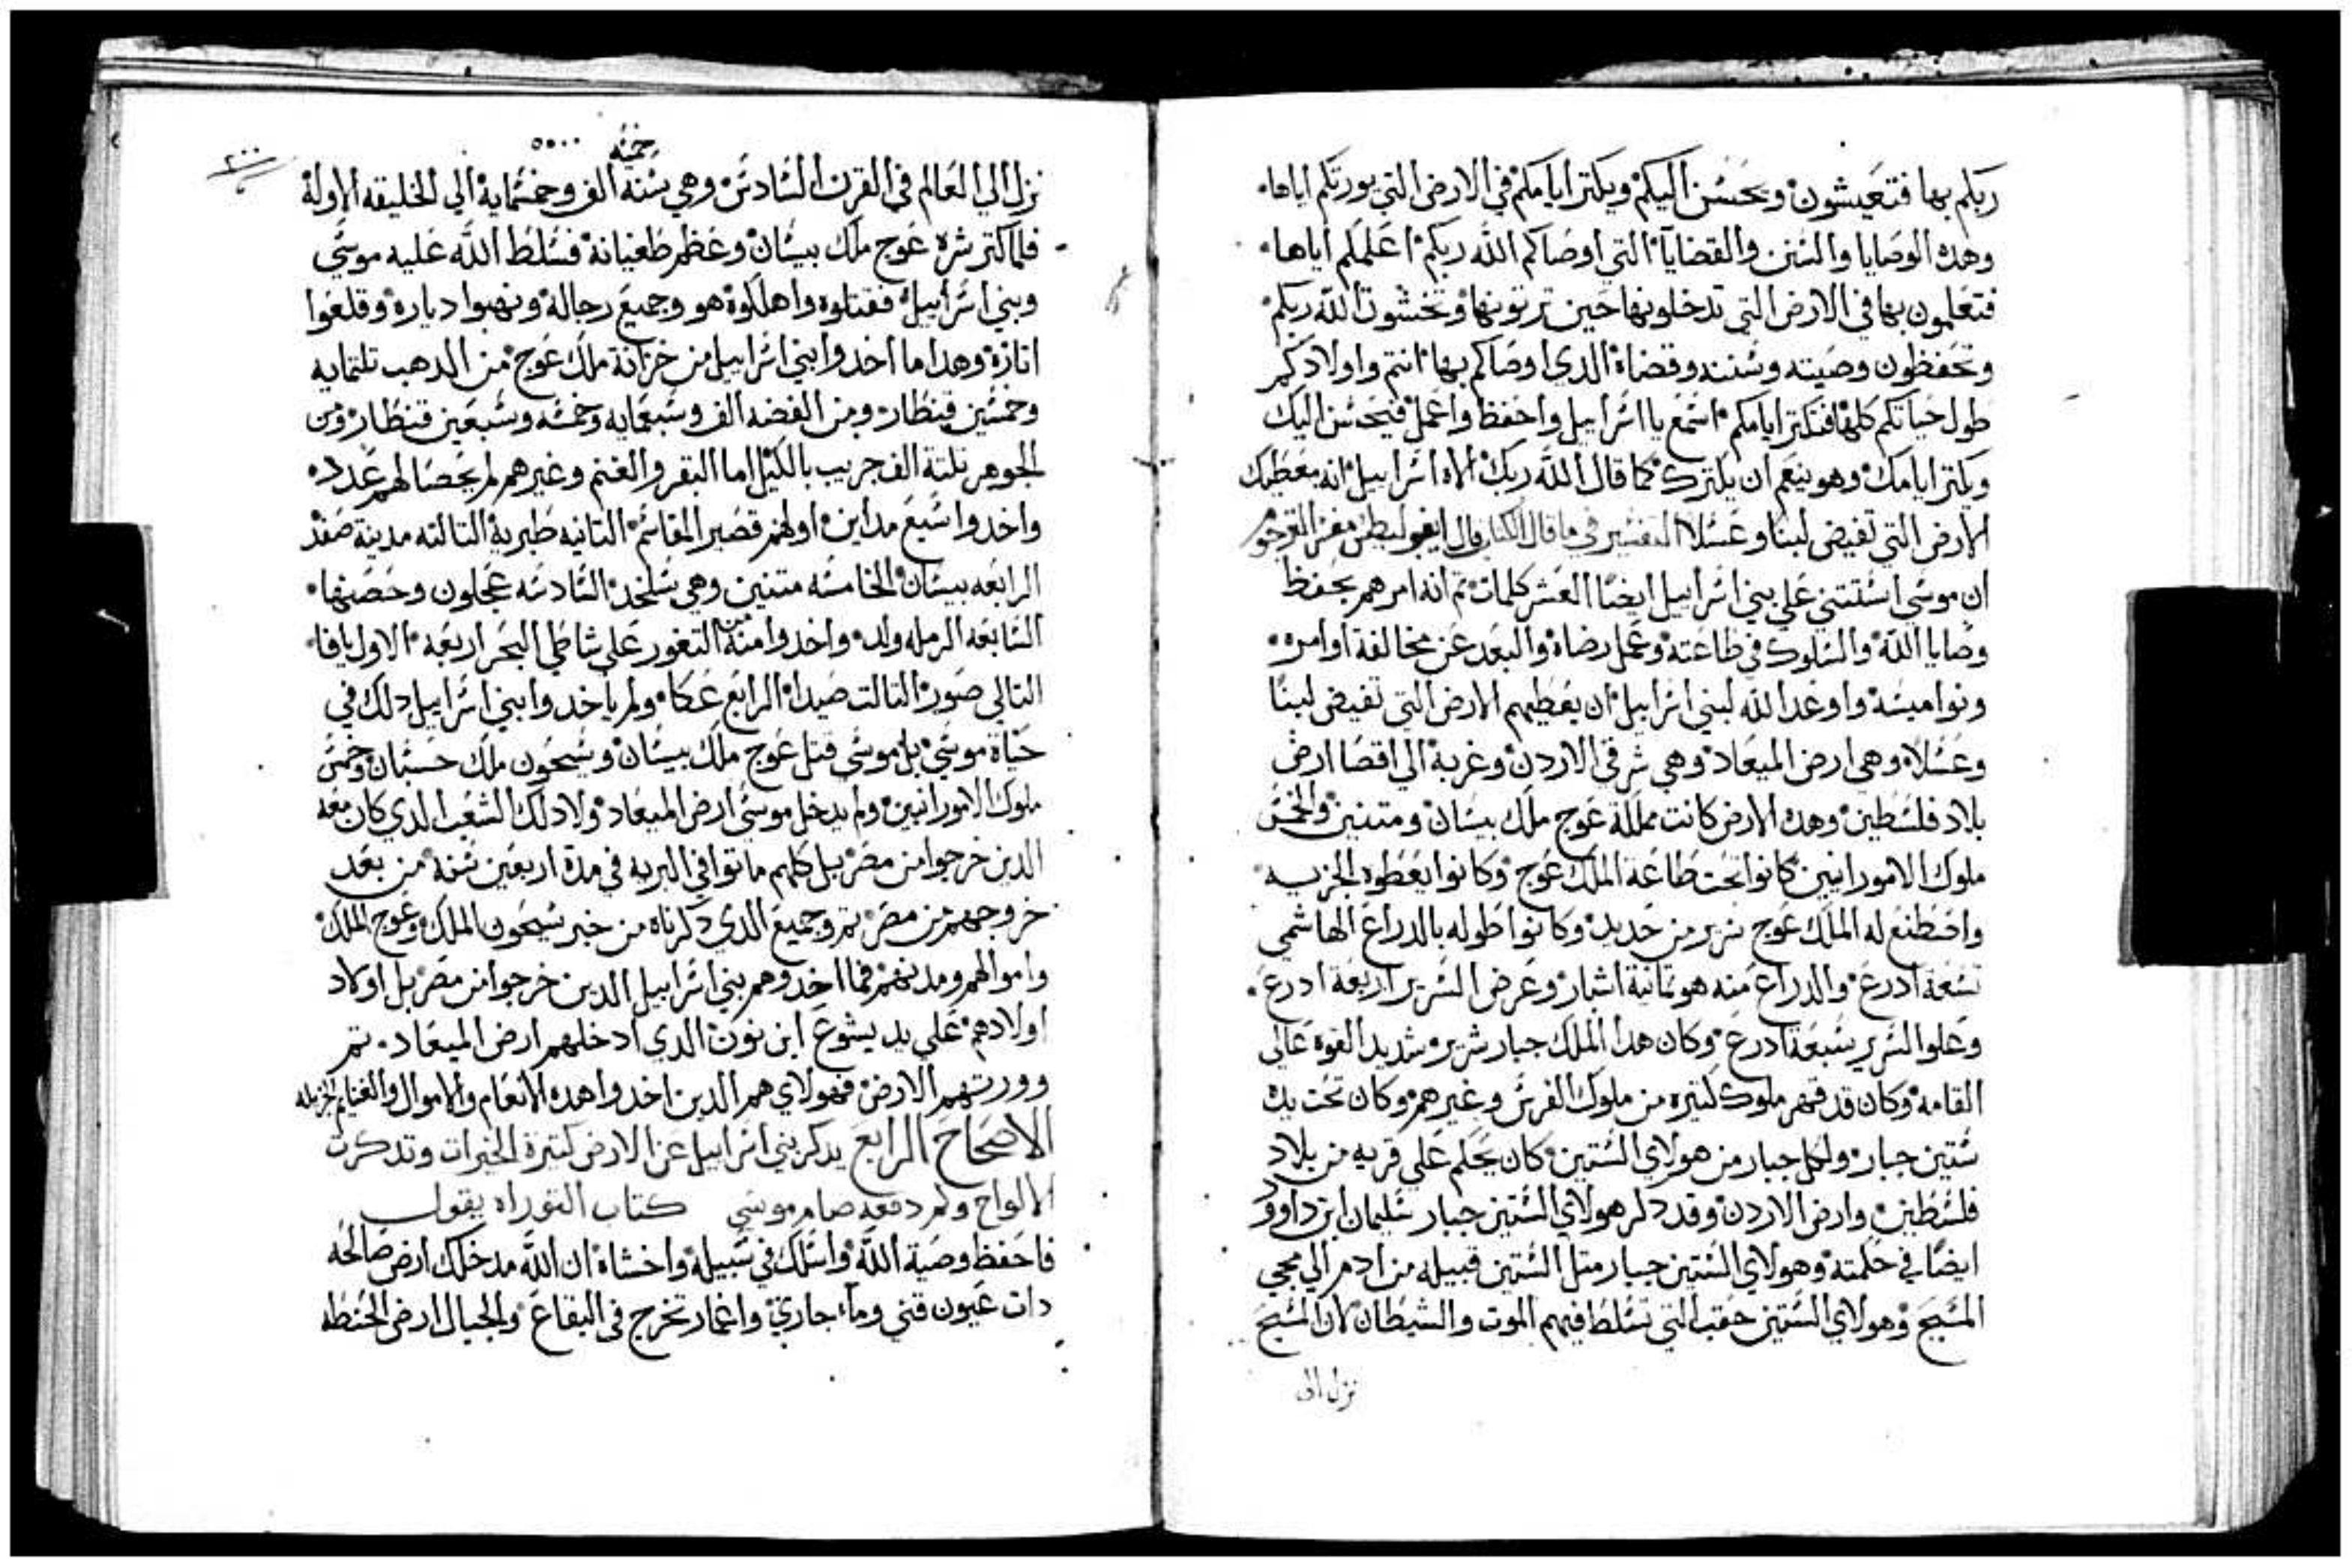 ربكم بها فتعيشون ويحسن اليكم ويكتر ايامكم في الارض التي يورتكم اياها
وهده الوصايا والسنن والقضايا التي اوصاكم الله ربكم اعلمكم اياها
فتعلمون بها في الارض التي تدخلونها حين ترتونها وتخشون الله ربكم
وتحفظون وصيته وسننه وقضاه الدي اوصاكم بها انتم واولادكم
طول حياتكم كلها فتكتر ايامكم اسمع يا اسراييل واحفظ واعمل فيحسن اليك
ويكتر ايامك وهو ينعم ان يكترك كما قال الله ربك الاه اسراييل انه معطيك
الارض التي تفيض لبنا وعسلا التفسير في ما قال الكتاب قال
ان موسى استتني على بني اسراييل ايضا العشر كلمات تم انه امرهم بحفظ
وصايا الله والسلوك في طاعته وعمل رضاه والبعد عن مخالفة اوامره
ونواميسه واوعد الله لبني اسراييل ان يعطيهم الارض التي تفيض لبنا
وعسلا وهي ارض الميعاد وهي شرقي الاردن وغربه الي اقصا ارض
بلاد فلسطين وهده الارض كانت مملكة عوج ملك بيسان ومتنين والخمس
ملوك الامورانيين كانوا تحت طاعة الملك عوج وكانوا يعطوه الجزيه
واصطنع له الملك عوج سرير من حديد وكانوا طوله بالدراع الهاشمي
تسعة ادرع والدراع منه هو تمانية اشبار وعرض السرير اربعة ادرع
وعلوا السرير سبعة ادرع وكان هدا الملك جبار شرير شديد القوه عالي
القامه وكان قد قهر ملوك كتيره من ملوك الفرس وغيرهم وكان تحت يده
ستين جبار ولكل جبار من هولاي الستين كان يحكم على قريه من بلاد
فلسطين وارض الاردن وقد دكر هولاي الستين جبار سليمان ابن داوود
ايضا في حكمته وهولاي الستين جبار متل الستين قبيله من ادم الي مجي
المسيح وهولاي الستين حقبه التي تسلط فيهم الموت والشيطان لان المسيح
نزل الي
خمسة ٥٥٠٠
نزل الي العالم في القرن السادس وهي سنة الف وخمسماية الي الخليقه الاوله
فلما كتر شره عوج ملك بيسان وعظم طغيانه فسلط الله عليه موسي
وبني اسراييل فقتلوه واهلكوه هو وجميع رجاله ونهبوا دياره وقلعوا
اتاره وهدا ما اخدوا بني اسراييل من خزانة ملك عوج من الدهب تلتمايه
وخمسين قنطار ومن الفضه الف وسبعمايه وخمسه وسبعين قنطار ومن
الجوهر تلتة الف جريب بالكيل اما البقر والغنم وغيرهم لم يحصا لهم عدد
واخدوا سبع مداين اولهم قصبر المقاسم التانيه طبريه التالته مدينة صفد
الرابعه بيسان الخامسه متنين وهي سلخد السادسه عجلون وحصنها
السابعه الرمله ولد واخدوا منه من التغور علي شاطي البحر اربعه الاول يافا
التاني صور التالت صيدا الرابع عكا ولم ياخدوا بني اسراييل دلك في
حياة موسي بل موسي قتل عوج ملك بيسان وسيحون ملك حسبان وخمس
ملوك الامورانيين ولم يدخل موسي ارض الميعاد ولا دلك الشعب الدي كان معه
الدين خرجوا من مصر بل كلهم ماتوا في البريه في مدة اربعين سنه من بعد
خروجهم من مصر تم وجميع الدي دكرناه من خبر سيحون الملك وعوج الملك
واموالهم ومدنهم فما اخدوهم بني اسراييل الدين خرجوا من مصر بل اولاد
اولادهم علي يد يشوع ابن نون الدي ادخلهم ارض الميعاد تم
وورتهم الارض فهولاي هم الدين اخدوا هده الانعام والاموال والغنايم الجزيله
الاصحاح الرابع يدكر بني اسراييل عن الارض كتيرة الخيرات وتدكرت
الالواح وكم دفعه صام موسي كتاب التوراه يقول
فاحفظ وصية الله واسلك في سبيله واخشاه ان الله مدخلك ارض صالحه
دات عيون قني وماء جاري واغمار تخرج في البقاع والجبال ارض الحنطه